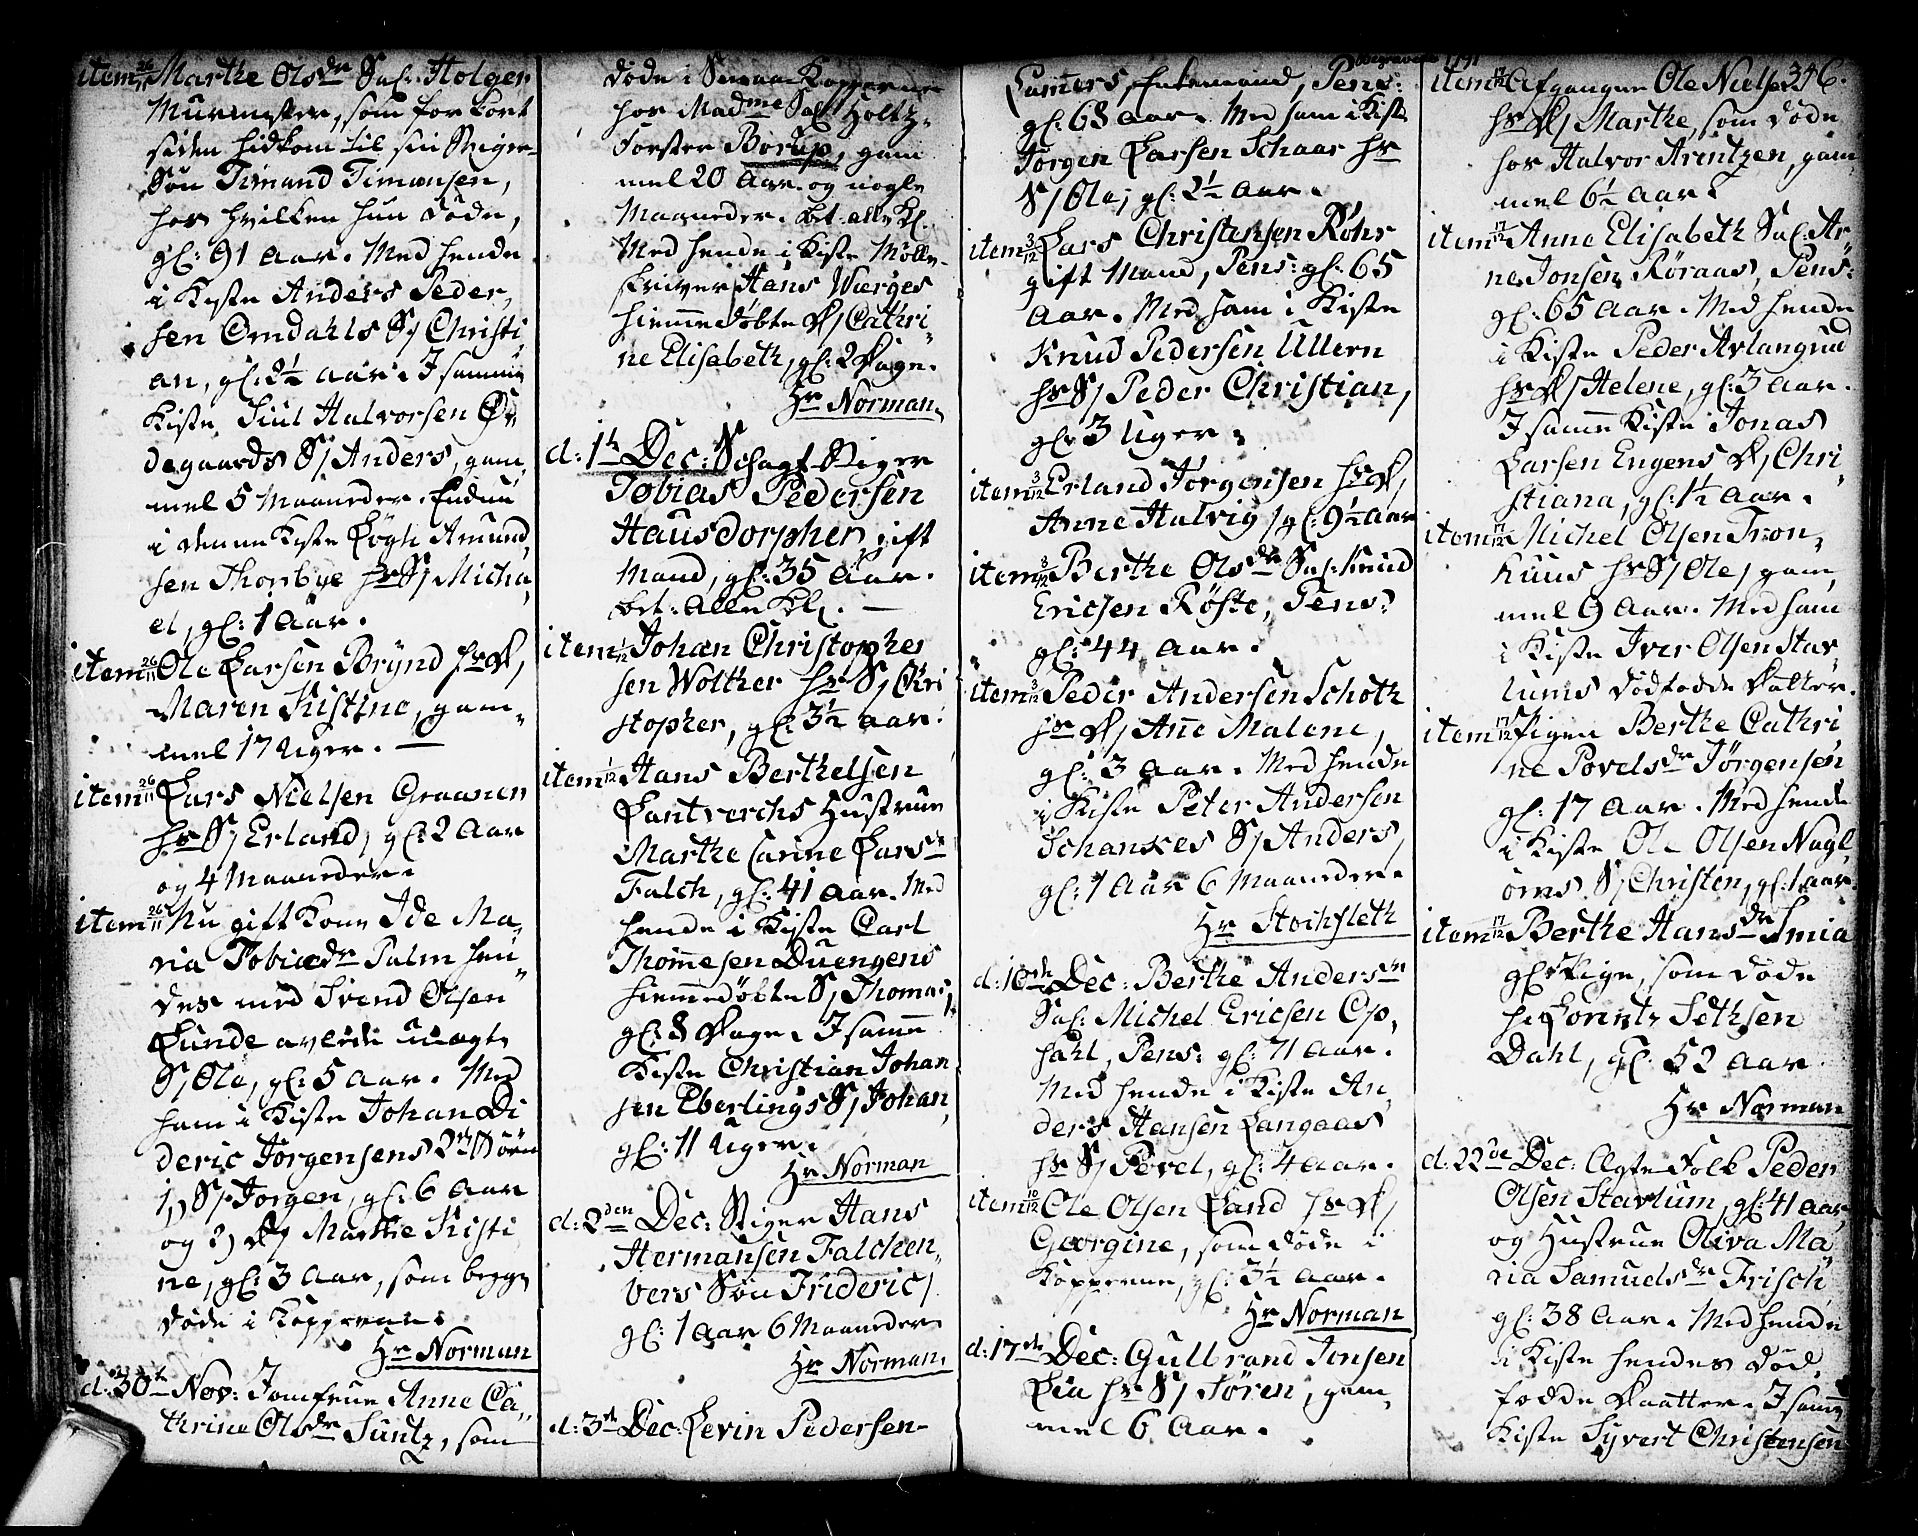 item 26/11 Marthe Olsdr Sal: Holgen
Murmester, som for kort
siden hidkom til sin Stiger-
Søn Timand Timansen,
hos hvilken hun døde,
gl: 91 Aar. Med hende
i Kiste Anders Peder,
sen Omdahls S/ Christi,
an, gl: 2½ Aar. I samme
Kiste Siul Halvorsen Ø,
degaards S/ Anders, gam,
mel 5 Maaneder. Endnu
i denne Kiste Løgh Amund,
sen Thorbye hs S/ Micha,
el, gl: 1 Aar.
item 26/11 Ole Larsen Brÿnd hs D/
Maren Kistine, gam-
mel 17 Uger. —
item 26/11 Lars Nielsen Graanen
hs S/ Erland, gl: 2 Aar
og 4 Maaneder.
item 26/11 Nu gift Kone Ide Ma,
ria Tobiædr Palm hen,
des med Svend Olsen
Lunde avlede uægte
S/ Ole, gl: 5 Aar. Med
ham i Kiste Johan Di
deric Jørgensens 2de Børn
1, S/ Jørgen, gl: 6 Aar
og 2) D/ Marthe Kisti
ne, gl: 3 Aar, som begge
døde i Kopperne.
Hr Norman
d: 30te Nov: Jomfrue Anne Ca,
thrine Olsdr Suntz, som
døde i Smaa Kopperne
hos Madme Sal: Holtz-
Førster Borup, gam
mel 20 Aar og nogle
Maaneder. bet. alle Kl.
Med hende i Kiste Mølle-
skriver Hans Wierges
hiemmedøbte D/ Cathri,
ne Elisabeth, gl: 2 Dage.
Hr Norman
d: 1te Dec: Schagt Stiger
Tobias Pedersen
Hausdorpher gift
Mand, gl: 35 Aar.
bet: alle Kl. —
item 1/12 Johan Christopher
sen Wolther hs S/ Chri
stopher, gl: 3½ Aar.
item 1/12 Hans Berthelsen
Lantverchs Hustrue
Marthe Carine Larsdr
Falch, gl: 41 Aar. Med
hende i Kiste Carl
Thommesen Duengens
hiemmedøbte S/ Thomas,
gl: 8 Dage. I samme
Kiste Christian Johan
sen Eberlings S/ Johan,
gl: 11 Uger.
Hr Norman
d: 2den Dec: Stiger Hans
Hermansen Falchen,
bers Søn Frideric,
gl: 1 Aar 6 Maaneder.
Hr Norman.
d: 3de Dec: Levin Pedersen
Begravede 1791
Lammers, Enkemand, Pens:
gl: 68 Aar. Med ham i Kiste
Jørgen Larsen Schaar hs
S/ Ole, gl: 2½ Aar.
item 3/12 Lars Christensen Røhr
gift Mand, Pens: gl: 65
Aar. Med ham i Kiste
Knud Pedersen Ullern
hs S/ Peder Christian,
gl: 3 Uger.
item 3/12 Erland Jørgensen hs D/
Anne Halvig, gl: 9½ Aar
item 3/12 Berthe Olsdr Sal: Knud
Ericsen Røste, Pens:
gl: 44 Aar.
item 3/12 Peder Andersen Schoth
hs D/ Anne Malene,
gl: 3 Aar. Med hende
i Kiste Peter Andersen
Schanxes S/ Anders,
gl: 1 Aar 6 Maaneder.
Hr Stochfleth
d: 10de Dec: Berthe Andersdr
Sal: Michel Ericsen Op,
sahl, Pens: gl: 71 Aar.
Med hende i Kiste An,
ders Hansen Langaas
hs S/ Povel, gl: 4 Aar.
item 10/12 Ole Olsen Land hs D/
Georgine, som døde i
Kopperne, gl: 3½ Aar.
Hr Norman
d: 17de Dec: Gulbrand Jonsen
Lia hs S/ Søren, gam,
mel 6 Aar.
346.
item 17/12 Afgangne Ole Nielsens
hs D/ Marthe, som døde
hos Halvor Arintzen, gam,
mel 6½ Aar.
item 17/12 Anne Elisabeth Sal: Ar,
ne Jonsen Røraas, Pens:
gl: 65 Aar. Med hende
i Kiste Peder Avlangrud
hs D/ Helene, gl: 3 Aar.
I samme Kiste Jonas
Larsen Engens D/ Chri,
stiana, gl: 1½ Aar.
item 17/12 Michel Olsen Tron,
huus hs S/ Ole, gam,
mel 9 Aar. Med ham
i Kiste Iver Olsen Stav,
lums dødfødde Datter.
item 17/12 Pigen Berthe Cathri,
ne Povelsdr Jørgensen
gl: 17 Aar. Med hende
i Kiste Ole Olsen Nagl,
øens S/ Christen, gl: 1 Aar.
item 17/12 Berthe Hansdr Smia
gl: Pige, som døde
hs Lorntz Sethsen
Dahl, gl: 52 Aar.
Hr Norman
d: 22de Dec: Ægte Folk Peder
Olsen Stavlum, gl: 41 Aar,
og Hustrue Oliva Ma,
ria Samuelsdr Frisch,
gl: 38 Aar. Med hende
i Kiste hendes død,
fødde Daatter. I samme
Kiste Syvert Christensen